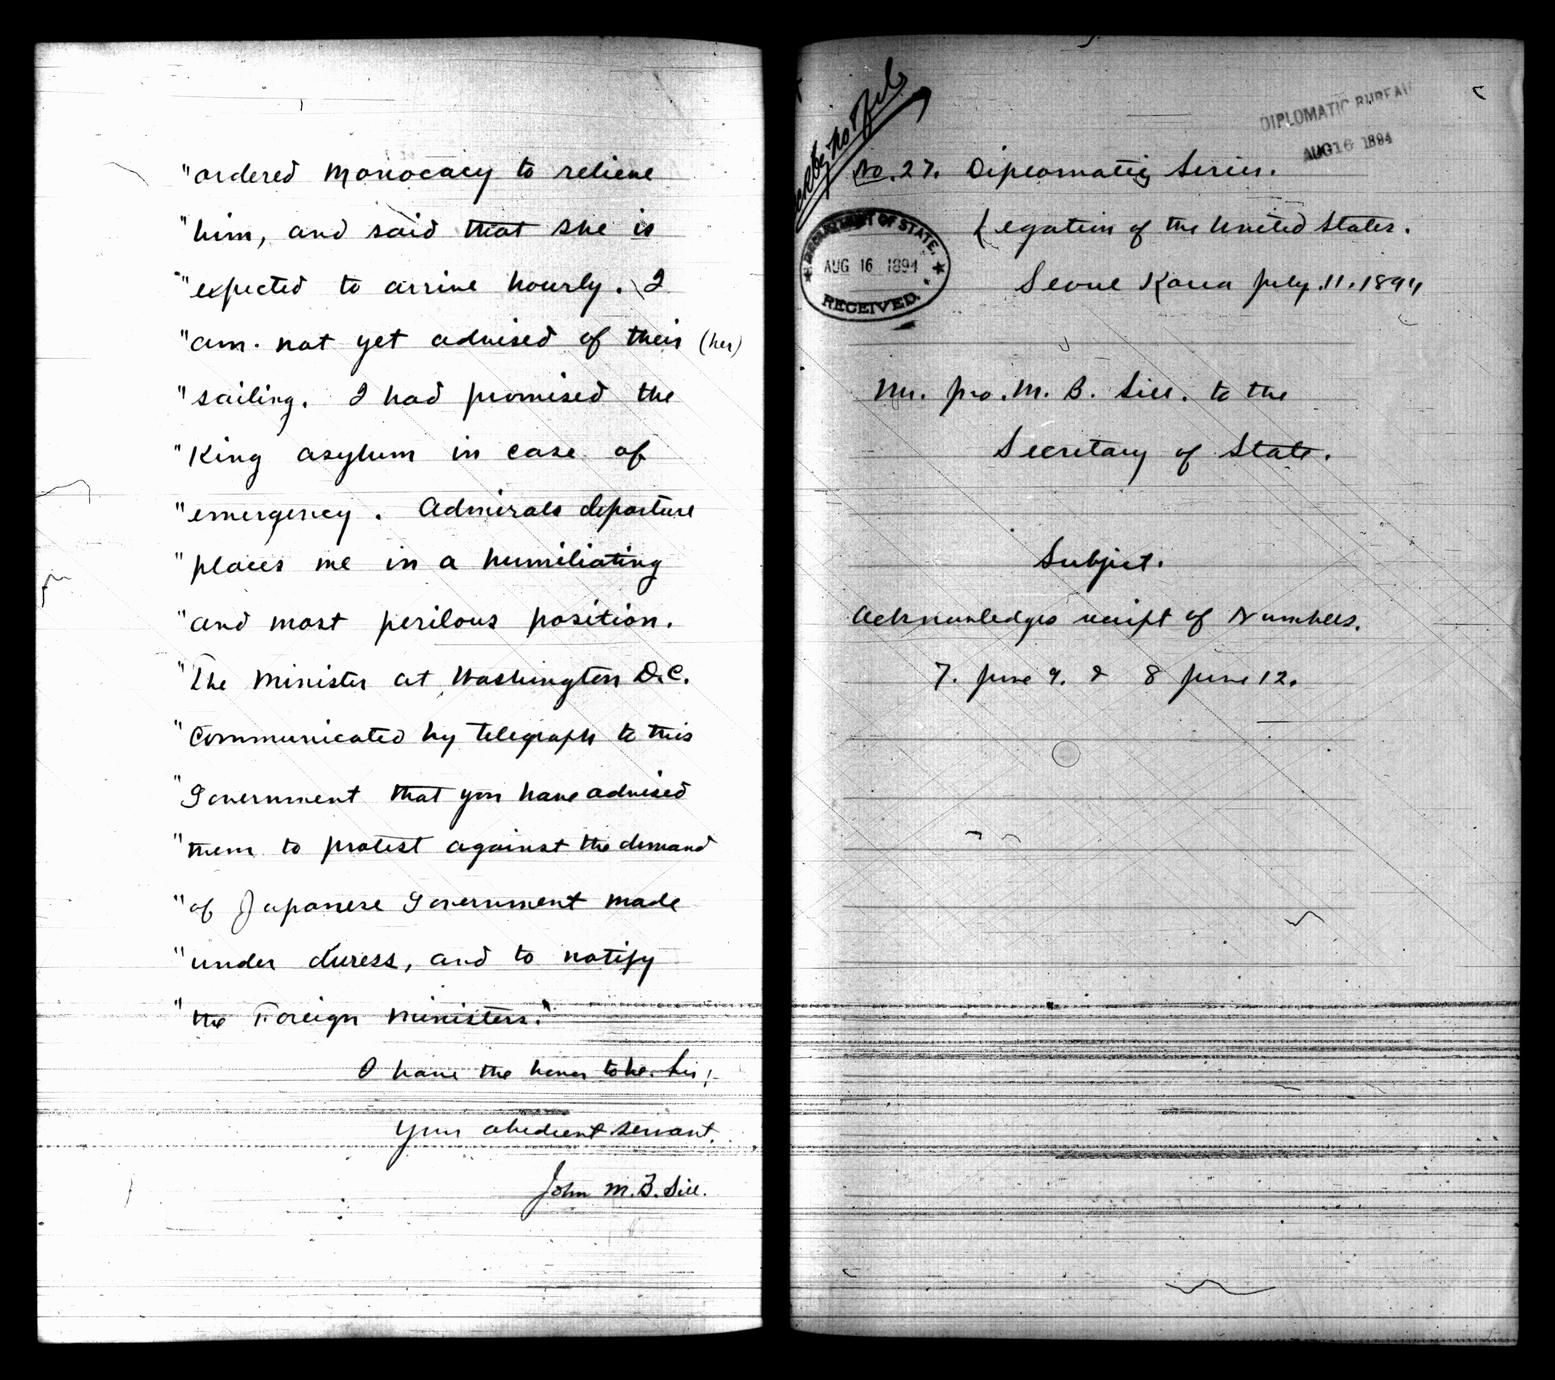 "ordered Monocacy to relieve
"him, and said that she is
"expected to arrive hourly. I
"am not yet advised of their (her)
"sailing. I had promised the
"King asylum in case of
"emergency. Admirals departure
"places me in a humiliating
"and most perilous position.
"The Minister at Washington D.C.
"Communicated by telegraph to this
"Government that you have advised
"them to protest against the demand
"of Japanese Government made
"under duress, and to notify
"the Foreign Ministers."
I have the honor to be. Sir,
Your obedient servant,
John M. B. Sill.
DIPLOMATIC BUREAU
AUG 16 1894
No. 27. Diplomatic Series.
Legation of the United States.
Seoul Korea July. 11. 1894
DEPARTMENT OF STATE.
AUG 16 1894
RECEIVED.
Mr. Jno. M. B. Sill. to the
Secretary of State.
Subject.
Acknowledges receipt of Numbers.
7. June 9. & 8 June 12.